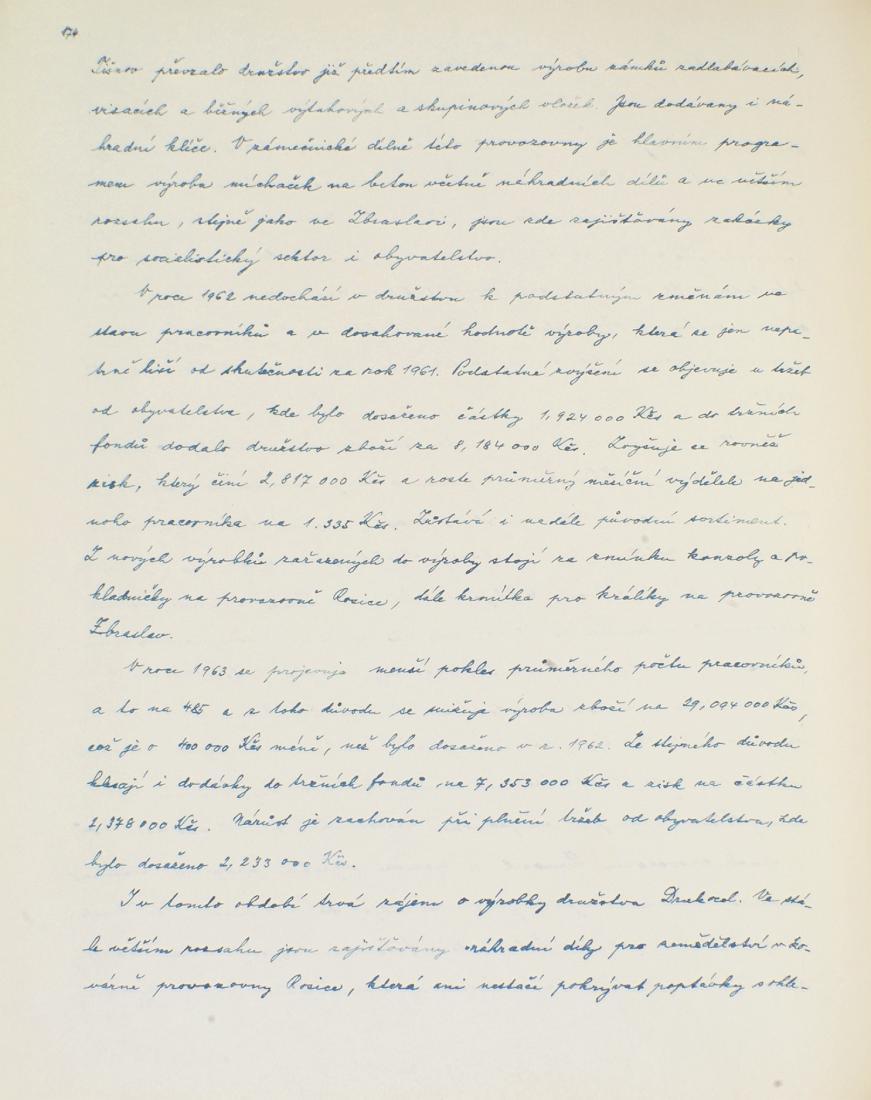 174
Tišnov převzalo družstvo již předtím zavedenou výrobu zámků zadlabávacích,
visacích a běžných výtahových a skupinových vložek. Jsou dodávany i ná-
hradní klíče. V zámečnické dílně této provozovny je hlavním progra-
mem výroba míchaček na beton včetně náhradních dílů a ve větším
rozsahu, stejně jako ve Zbraslavi, jsou zde zajišťovány zakázky
pro socialistický sektor i obyvatelstvo.
V roce 1962 nedochází v družstvu k podstatným změnám ve
stavu pracovníků a v dosahované hodnotě výroby, která se jen nepa-
trně liší od skutečnosti za rok 1961. Podstatné zvýšení se objevuje u tržeb
od obyvatelstva, kde bylo dosaženo částky 1,924 000 Kčs a do tržních
fondů dodalo družstvo zboží za 8,184 000 Kčs. Zvyšuje se rovněž
zisk, který činí 2,817 000 Kčs a roste průměrný měsíční výdělek na jed-
noho pracovníka na 1.335 Kčs. Zůstává i nadále původní sortiment.
Z nových výrobků zařazených do výroby stojí za zmínku konzoly a po-
kladničky na provozovně Rosice, dále krmítka pro králíky na provozovně
Zbraslav.
V roce 1963 se projevuje menší pokles průměrného počtu pracovníků,
a to na 485 a z toho důvodu se snižuje výroba zboží na 29,094 000 Kčs,
což je o 400 000 Kčs méně, než bylo dosaženo v r. 1962. Ze stejného důvodu
klesají i dodávky do tržních fondů na 7,353 000 Kčs a zisk na částku
2,378 000 Kčs. Nárůst je zachován při plnění tržeb od obyvatelstva, kde
bylo dosaženo 2,233 000 Kčs.
I v tomto období trvá zájem o výrobky družstva Drukocel. Ve stá-
le větším rozsahu jsou zajišťovány náhradní díly pro zemědělství v ko-
várně provozovny Rosice, která ani nestačí pokrývat poptávky s ohle-